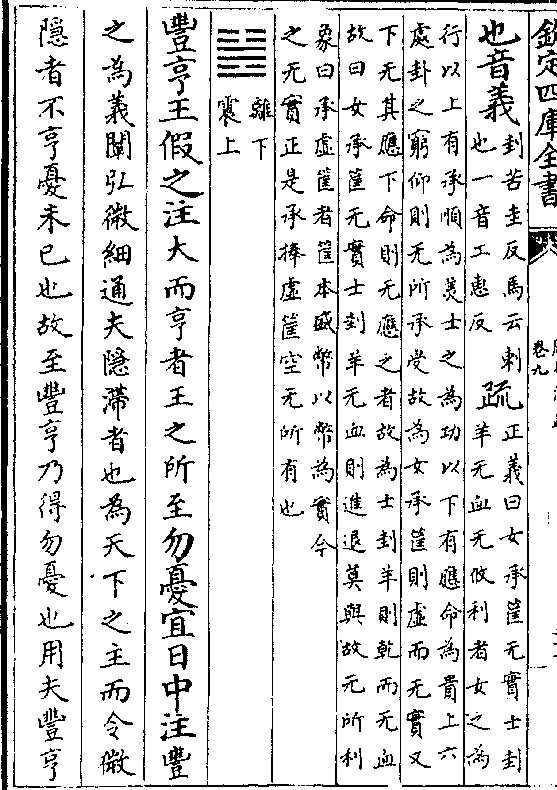 欽定四庫全書
卷九
也音義
刲苦圭反馬云刺
也一音工惠反
疏
正義曰女承筐无實士刲
羊无血无攸利者女之為
行以上有承順為美士之為功以下有應命為貴上六
處卦之窮仰則无所承受故為女承筐則虛而无實又
下无其應下命則无應之者故為士刲羊則乾而无血
故曰女承筐无實士刲羊无血則進退莫與故无所利
象曰承虛筐者筐本盛幣以幣為實今
之无實正是承捧虛筐空无所有也
離下
震上
豐亨王假之注大而亨者王之所至勿憂宜日中注豐
之為義闡弘微細通夫隱滯者也為天下之主而令微
隱者不亨憂未已也故至豐亨乃得勿憂也用夫豐亨